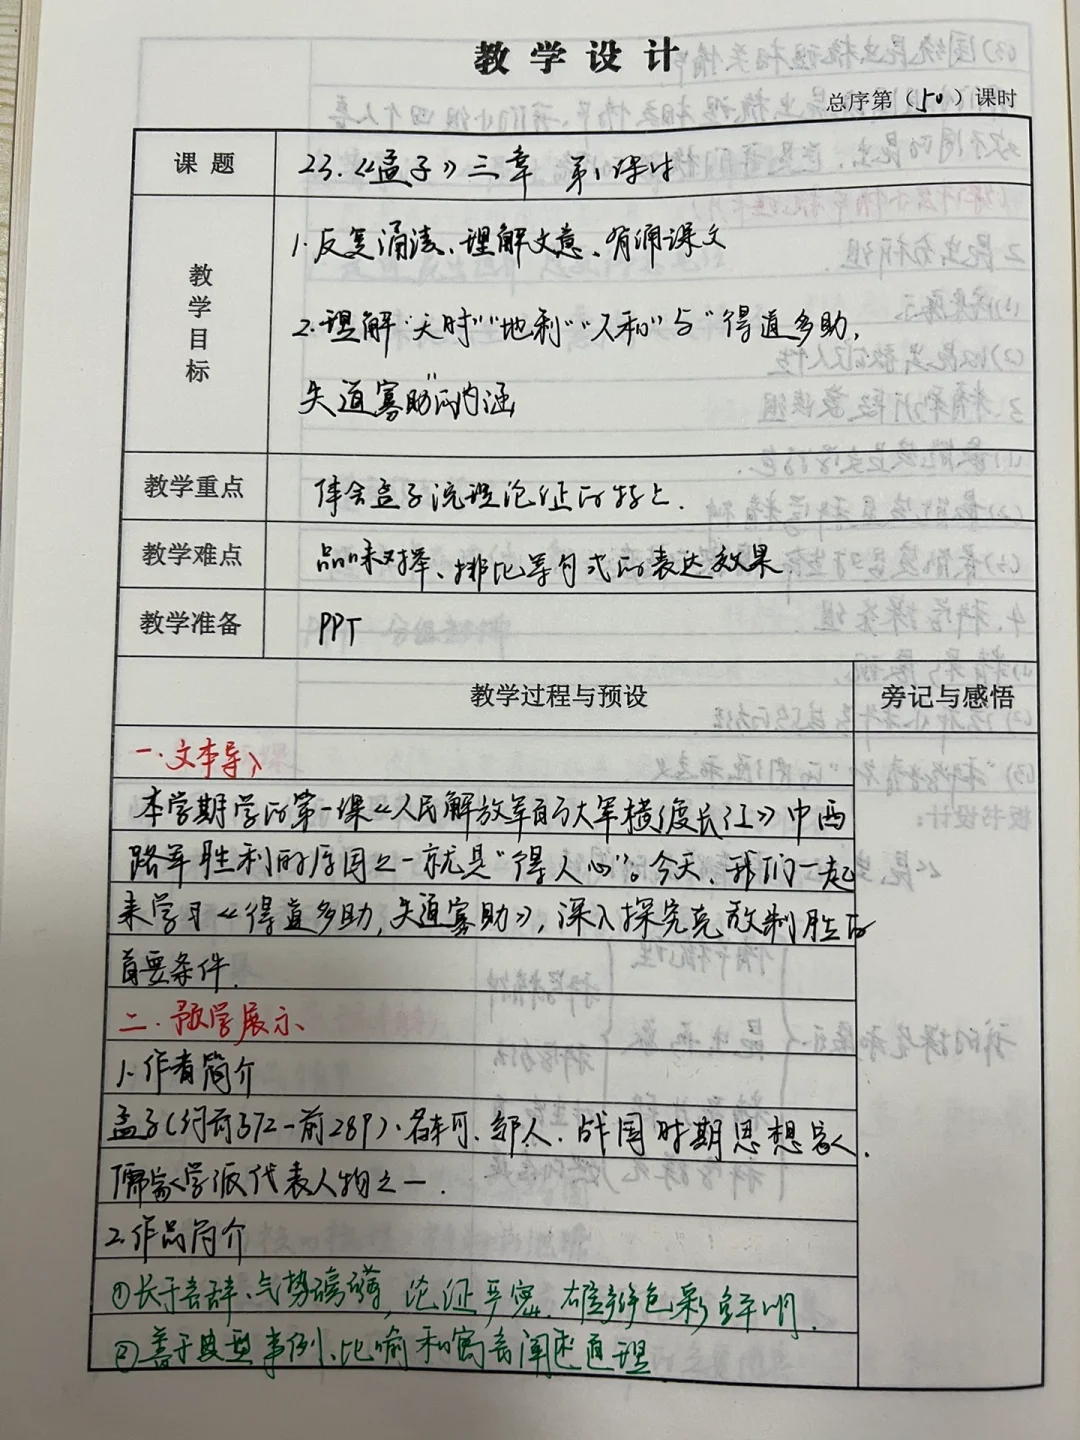 教学设计
总序第（50）课时
课题
23.《孟子》三章 第1课时
教学目标
1.反复诵读、理解文意、背诵课文
2.理解“天时”“地利”“人和”与“得道多助，
失道寡助”的内涵
教学重点
体会孟子说理论证的特点.
教学难点
品味对举、排比等句式的表达效果.
教学准备
PPT
教学过程与预设
旁记与感悟
一.文本导入
本学期学的第一课《人民解放军百万大军横渡长江》中西
路军胜利的原因之一就是“得人心”。今天、我们一起
来学习《得道多助,失道寡助》,深入探究克敌制胜的
首要条件.
二.预学展示
1.作者简介
孟子(约前372-前289).名轲、邹人.战国时期思想家.
儒家学派代表人物之一.
2.作品简介
①长于言辞、气势磅礴,论证严密.雄辩色彩鲜明.
②善于典型事例、比喻和寓言阐述道理